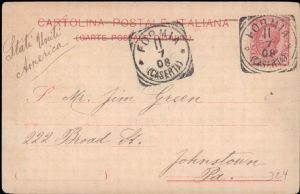 CARTOLINA POSTALE ITALIANA
(CARTE POSTALE
Stati Uniti
America
FORMIA
11
7
08
(CASERTA)
FORMIA
11
08
(CASERTA)
Mr. Jim Green
222 Broad St.
Johnstown
Pa.